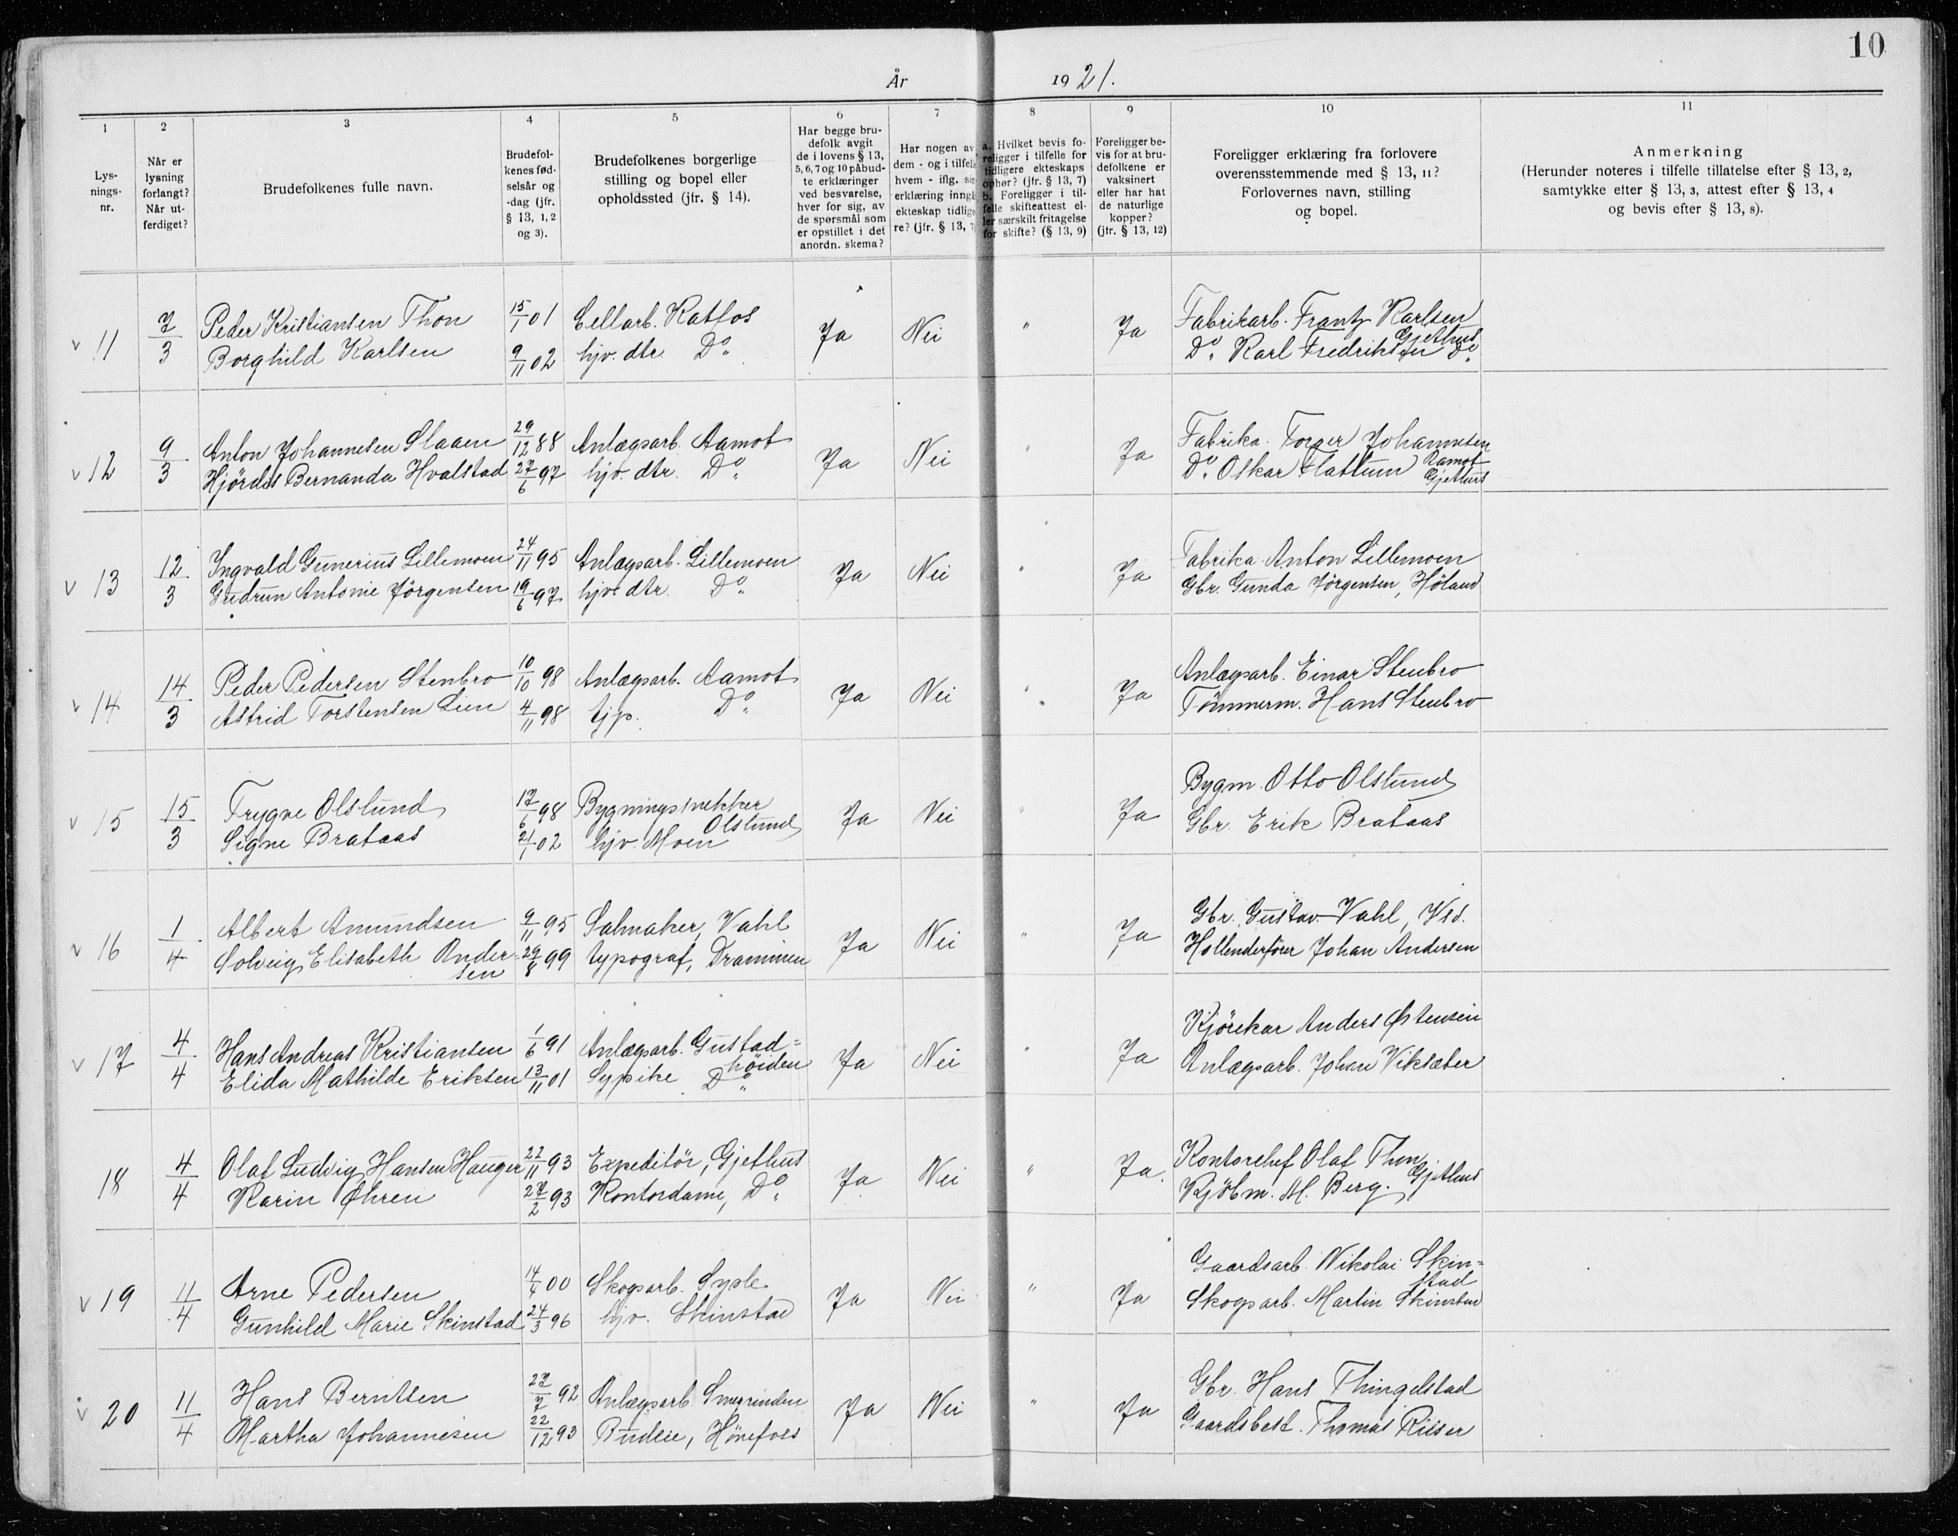 10
År 1921.
1 2 3 4 5 6 7 8 9 10 11
Lysnings-nr.
Når er lysning forlangt? Når utferdiget?
Brudefolkenes fulle navn.
Brudefolkenes fødselsår og -dag (jfr. § 13, 1, 2 og 3).
Brudefolkenes borgerlige stilling og bopel eller opholdssted (jfr. § 14).
Har begge brudefolk avgit de i lovens § 13, 5, 6, 7 og 10 påbudte erklæringer ved besvarelse, hver for sig, av de spørsmål som er opstillet i det anordn. skema?
Har nogen av dem - og i tilfelle hvem - iflg. sin erklæring inngå ekteskap tidligere? (jfr. § 13, 7
a. Hvilket bevis foreligger i tilfelle for tidligere ekteskaps ophør? (jfr. § 13, 7) b. Foreligger i tilfelle skifteattest eller særskilt fritagelse for skifte? (§ 13, 9)
Foreligger bevis for at brudefolkene er vaksinert eller har hat de naturlige kopper? (jfr. § 13, 12)
Foreligger erklæring fra forlovere overensstemmende med § 13, 11? Forlovernes navn, stilling og bopel.
Anmerkning (Herunder noteres i tilfelle tillatelse efter § 13, 2, samtykke efter § 13, 3, attest efter § 13, 4 og bevis efter § 13, 8).
v 11 7/3 Peder Kristiansen Thon 15/1 01 Cellarb. Katfos Ja Nei " Ja Fabrikarb. Frantz Karlsen Gjethus
Borghild Karlsen 9/11 02 hjv. dtr. Do Do Karl Fredriksen Do
v 12 9/3 Anton Johannesen Slaaen 29/12 88 Anlægsarb. Aamot Ja Nei " Ja Fabrika. Torger Johannesen Aamot
Hjørdis Bernanda Hvalstad 27/6 97 hjv. dtr. Do Do Oskar Flattum Gjethus
v 13 12/3 Ingvald Gunerius Lillemoen 24/11 95 Anlægsarb. Lillemoen Ja Nei " Ja Fabrika. Anton Lillemoen
Gudrun Antonie Jørgensen 19/6 97 hjv. dtr. Do Gbr. Gunda Jørgensen, Høland
v 14 14/3 Peder Pedersen Stenbro 10/10 98 Anlægsarb. Aamot Ja Nei " Ja Anlægsarb. Einar Stenbro
Astrid Torstensen Lien 4/11 98 tjp. Do Tømmerm. Hans Stenbro
v 15 15/3 Trygve Olslund 17/6 98 Bygningssnekker Olslund Ja Nei " Ja Bygm. Otto Olslund
Signe Brataas 21/1 02 hjv. Moen Gbr. Erik Brataas
v 16 1/4 Albert Amundsen 9/11 95 Salmaker, Vahl Ja Nei " Ja Gbr. Gustav Vahl,
Solveig Elisabeth Andersen 29/8 99 typograf, Drammen Hollenderfører Johan Andersen
v 17 4/4 Hans Andreas Kristiansen 1/6 91 Anlægsarb. Gustadhöiden Ja Nei " Ja Kjørekar Anders Østensen
Elida Mathilde Eriksen 13/11 01 Sypike Do Anlægsarb. Johan Viksæter
18 4/4 Olaf Ludvig Hansen Hauger 22/11 93 Expeditør, Gjethus Ja Nei " Ja. Kontorchef Olaf Thon Gjethus
Karin Øhren 27/2 93 Kontordame, Do Kjöbm. M. Berg.
v 19 11/4 Arne Pedersen 14/4 00 Skogsarb. Sysle Ja Nei " Ja Gaardsarb. Nikolai Skinstad
Gunhild Marie Skinstad 24/3 96 hjv. Skinstad Skogsarb. Martin Skinstad
v 20 11/4 Hans Berntsen 27/7 92 Anlægsarb. Smgrinden Ja Nei " Ja Gbr. Hans Thingelstad
Martha Johannesen 22/12 93 Budeie, Hönefoss Gaardsbest. Thomas Riiser